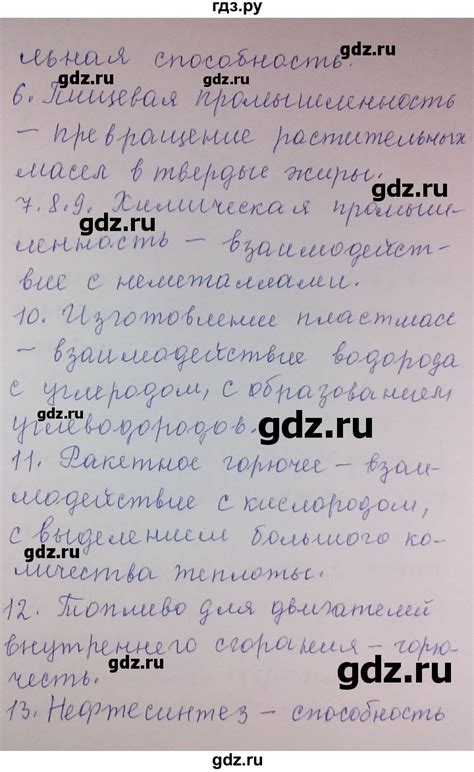 гдз.ру
льная способность.
gdz.ru
gdz.ru
6. Пищевая промышленность
gdz.ru
– превращение растительных
масел в твердые жиры.
gdz.ru
7.8.9. Химическая промыш-
gdz.ru
ленность – взаимодейст-
вие с неметаллами.
gdz.ru
10. Изготовление пластмасс
gdz.ru
– взаимодействие водорода
с углеродом, с образованием
gdz.ru
углеводородов.
gdz.ru
11. Ракетное горючее – взаи-
gdz.ru
модействие с кислородом,
с выделением большого ко-
gdz.ru
gdz.ru
личества теплоты.
12. Топливо для двигателей
gdz.ru
внутреннего сгорания – горю-
gdz.ru
честь.
gdz.ru
13. Нефтесинтез – способность
gdz.ru